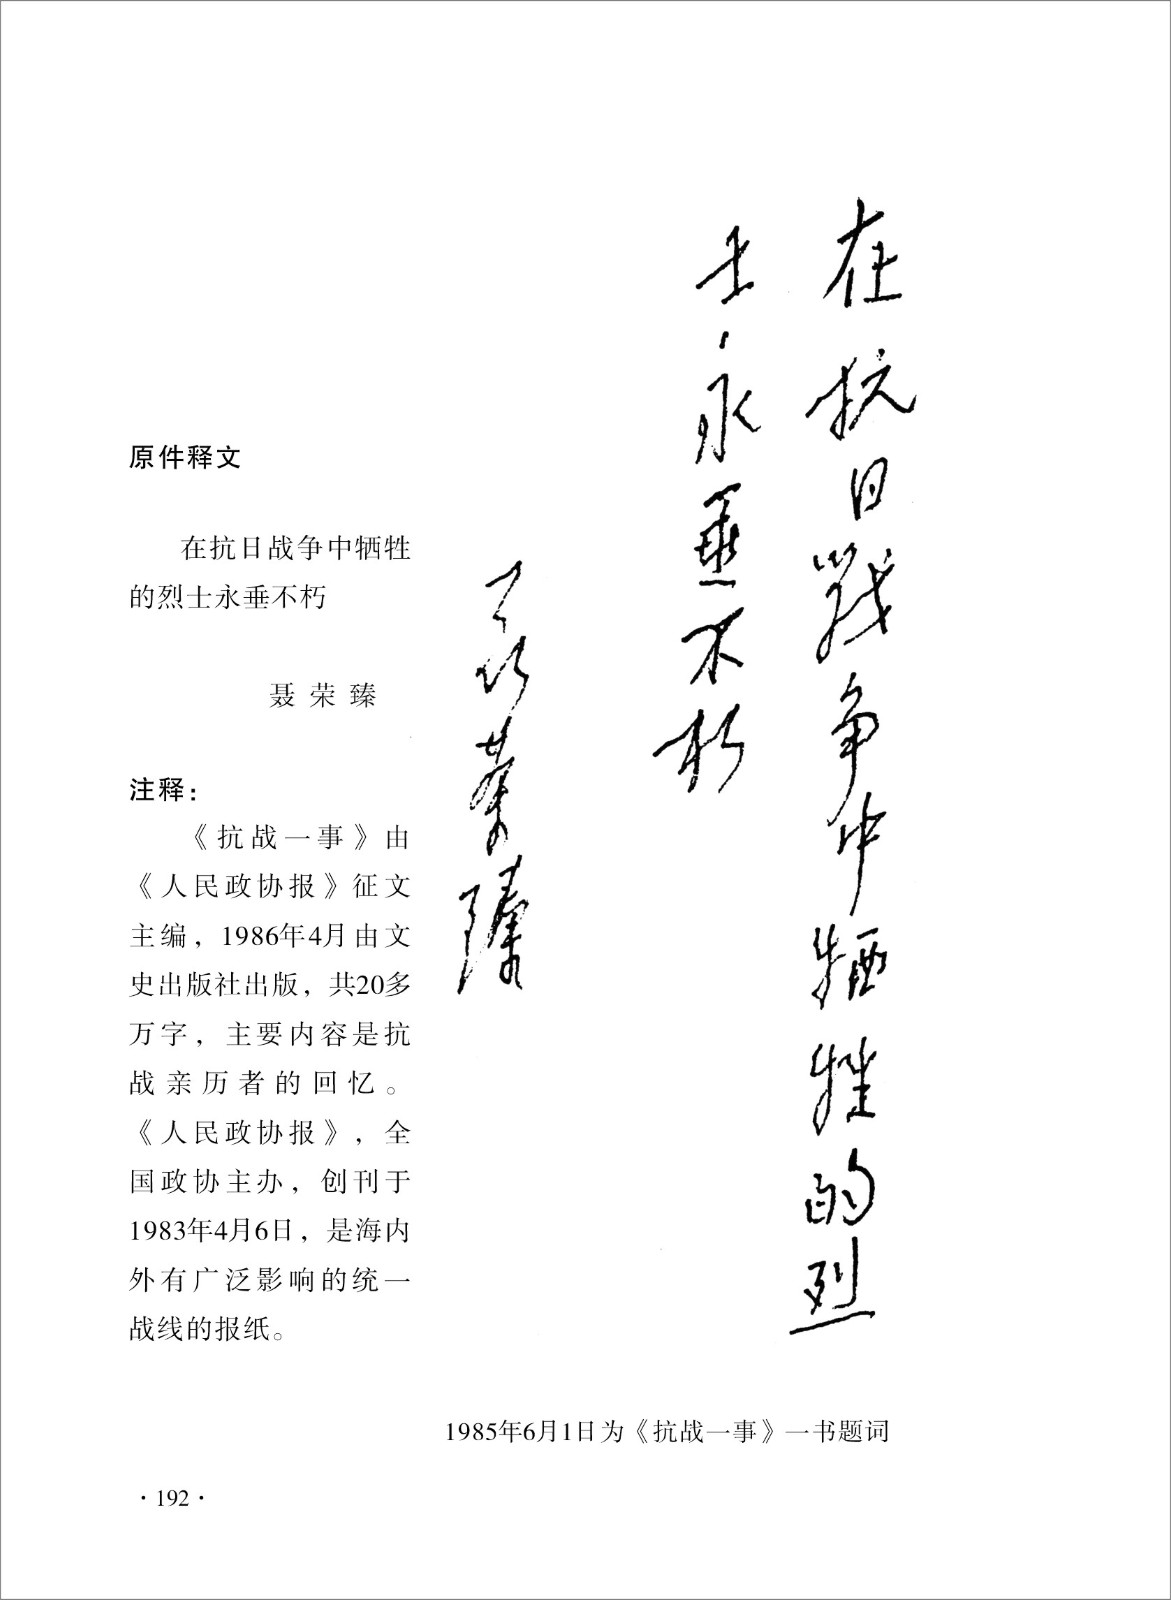 在抗日戰争中牺牲的烈
士永垂不朽
聂荣臻
原件释文
在抗日战争中牺牲
的烈士永垂不朽
聂荣臻
注释：
《抗战一事》由
《人民政协报》征文
主编，1986年4月由文
史出版社出版，共20多
万字，主要内容是抗
战亲历者的回忆。
《人民政协报》，全
国政协主办，创刊于
1983年4月6日，是海内
外有广泛影响的统一
战线的报纸。
1985年6月1日为《抗战一事》一书题词
·192·